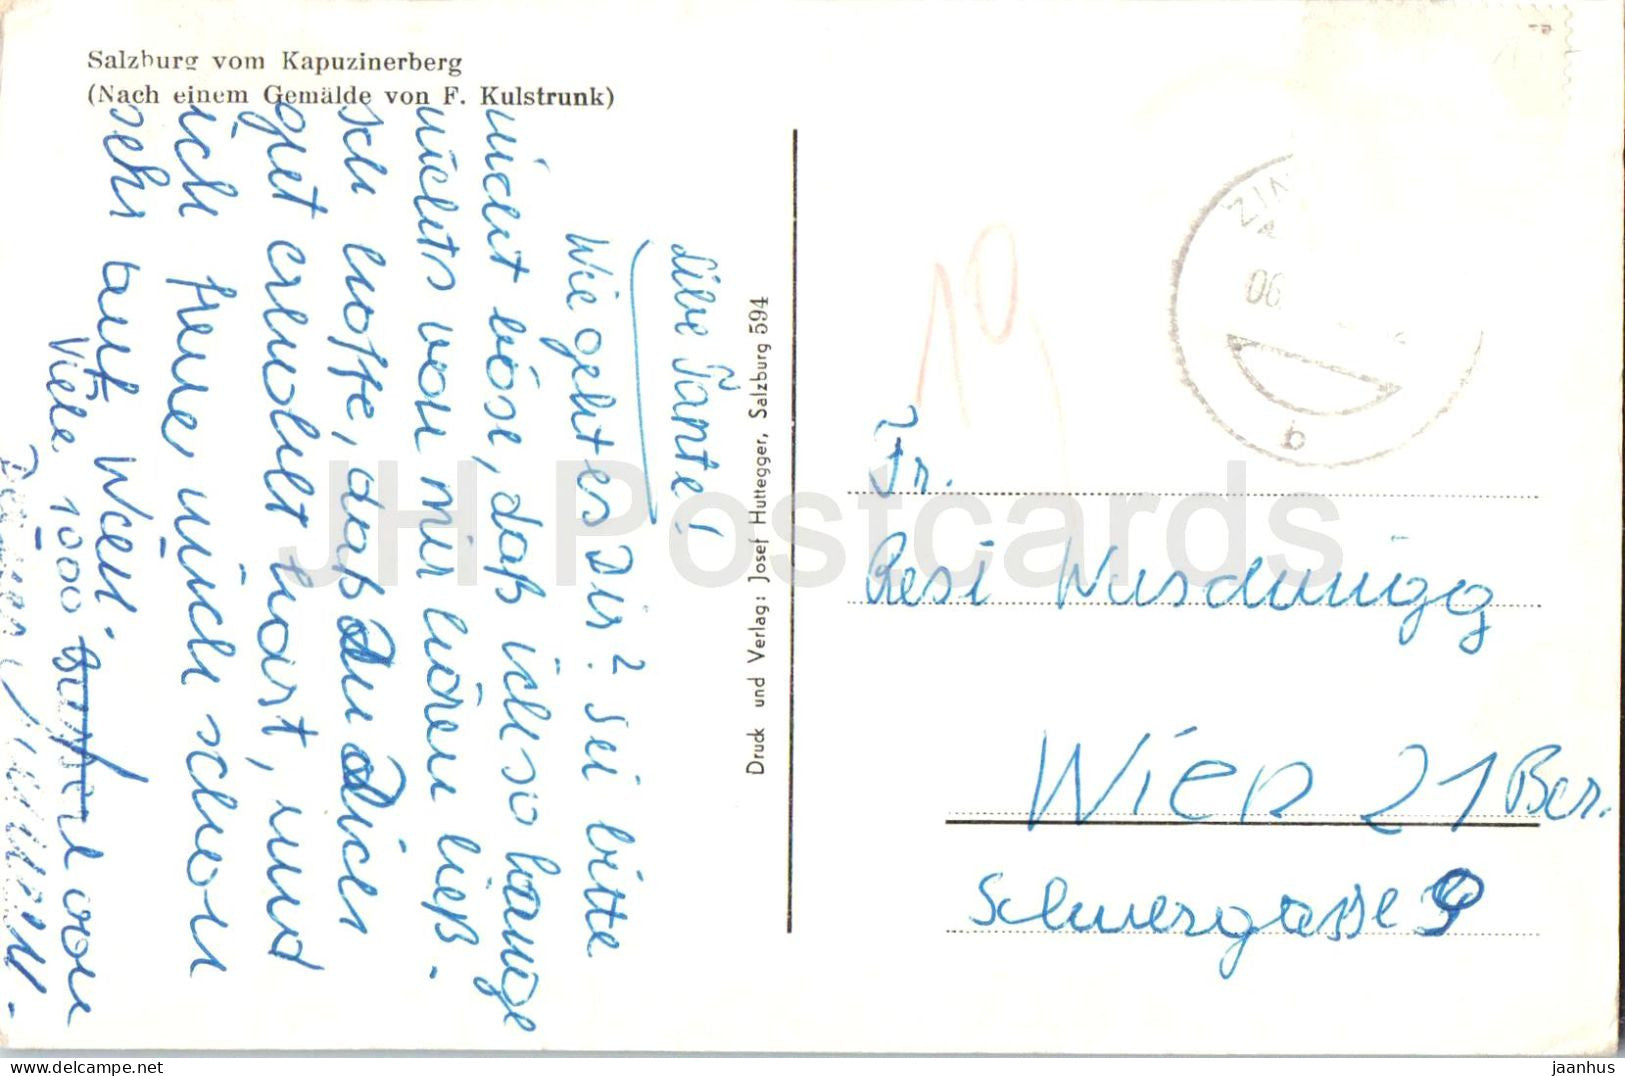 Salzburg vom Kapuzinerberg
(Nach einem Gemälde von F. Kulstrunk)
Liebe Tante!
Wie geht es Dir? Sei bitte
nicht böse, daß ich so lange
nichts von mir hören ließ.
Ich hoffe, daß Du Dich
gut erholt hast, und
ich freue mich schon
sehr auf Wien.
Viele 1000 von
Druck und Verlag: Josef Huttegger, Salzburg 594
19
06
b
Fr.
Resi
Wien 21 Bez.
9
JH Postcards
delcampe.net
jaanhus